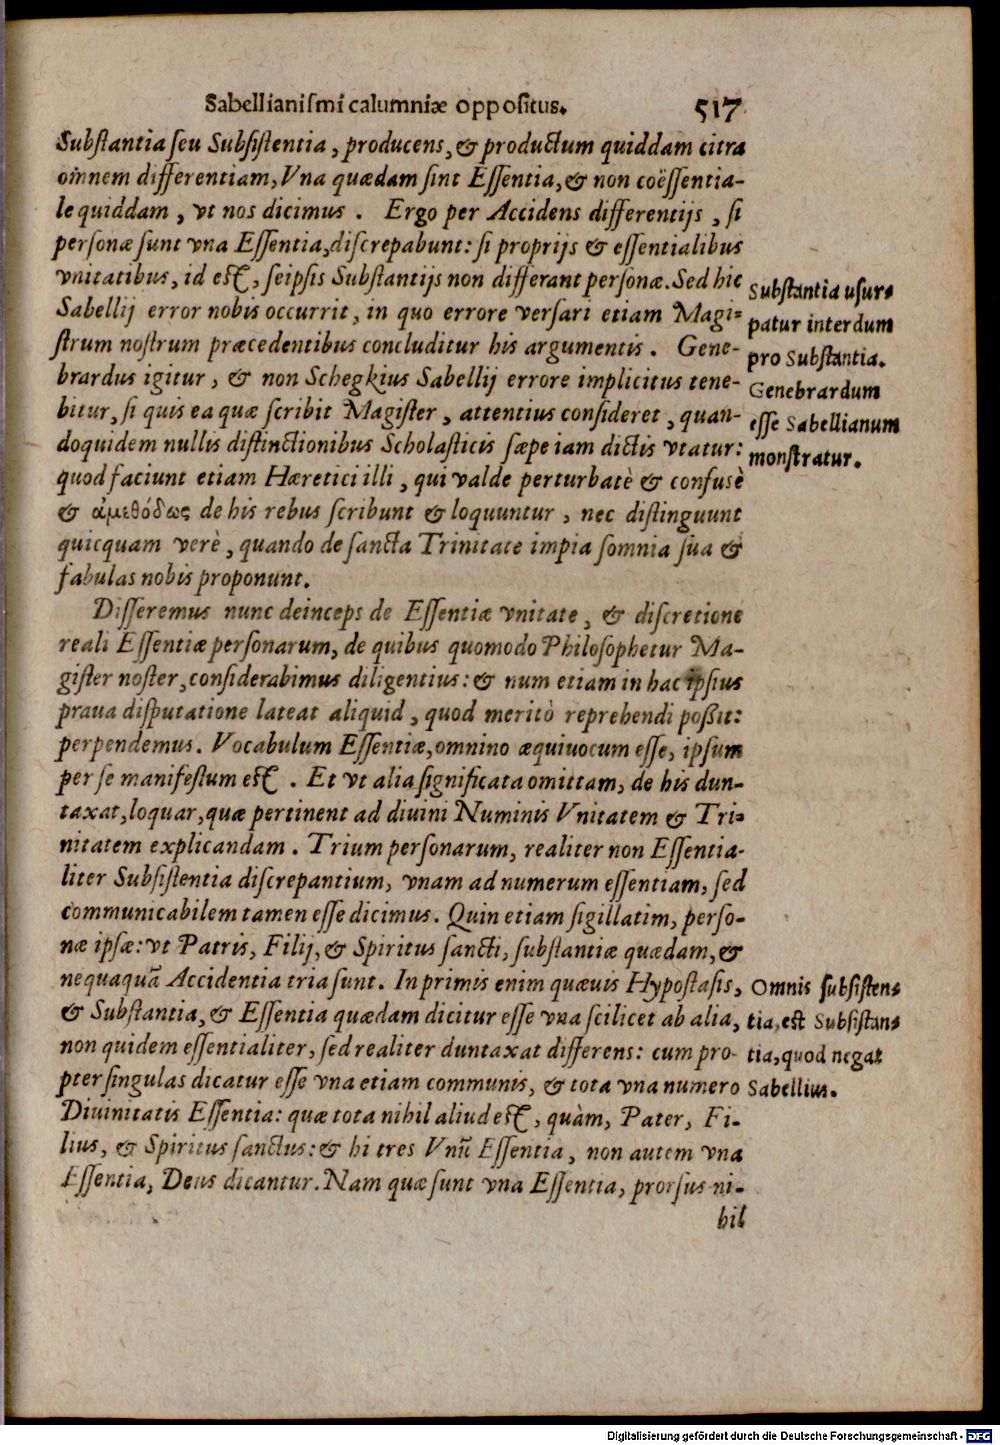 Sabellianiſmi calumniæ oppoſitus. 517
Subſtantia ſeu Subſiſtentia, producens, & productum quiddam citra
omnem differentiam, Vna quædam ſint Eſſentia, & non coëſſentia-
le quiddam, vt nos dicimus. Ergo per Accidens differentijs, ſi
perſonæ ſunt vna Eſſentia, diſcrepabunt: ſi proprijs & eſſentialibus
vnitatibus, id eſt, ſeipſis Subſtantijs non differant perſonæ. Sed hic
Sabellij error nobis occurrit, in quo errore verſari etiam Magi-
ſtrum noſtrum præcedentibus concluditur his argumentis. Gene-
brardus igitur, & non Schegkius Sabellij errore implicitus tene-
bitur, ſi quis ea quæ ſcribit Magiſter, attentius conſideret, quan-
doquidem nullis diſtinctionibus Scholaſticis ſæpe iam dictis vtatur:
quod faciunt etiam Hæretici illi, qui valde perturbatè & confuſè
& ἀμεθόδως de his rebus ſcribunt & loquuntur, nec diſtinguunt
quicquam verè, quando de ſancta Trinitate impia ſomnia ſua &
fabulas nobis proponunt.
Subſtantia uſur-
patur interdum
pro Subſtantia.
Genebrardum
eſſe Sabellianum
monſtratur.
Diſſeremus nunc deinceps de Eſſentiæ vnitate, & diſcretione
reali Eſſentiæ perſonarum, de quibus quomodo Philoſophetur Ma-
giſter noſter, conſiderabimus diligentius: & num etiam in hac ipſius
praua diſputatione lateat aliquid, quod meritò reprehendi poßit:
perpendemus. Vocabulum Eſſentiæ, omnino æquiuocum eſſe, ipſum
per ſe manifeſtum eſt. Et vt alia ſignificata omittam, de his dun-
taxat, loquar, quæ pertinent ad diuini Numinis Vnitatem & Tri-
nitatem explicandam. Trium perſonarum, realiter non Eſſentia-
liter Subſiſtentia diſcrepantium, vnam ad numerum eſſentiam, ſed
communicabilem tamen eſſe dicimus. Quin etiam ſigillatim, perſo-
næ ipſæ: vt Patris, Filij, & Spiritus ſancti, ſubſtantiæ quædam, &
nequaquā Accidentia tria ſunt. In primis enim quæuis Hypoſtaſis,
& Subſtantia, & Eſſentia quædam dicitur eſſe vna ſcilicet ab alia,
non quidem eſſentialiter, ſed realiter duntaxat differens: cum pro-
pter ſingulas dicatur eſſe vna etiam communis, & tota vna numero
Diuinitatis Eſſentia: quæ tota nihil aliud eſt, quàm, Pater, Fi-
lius, & Spiritus ſanctus: & hi tres Vnū Eſſentia, non autem vna
Eſſentia, Deus dicantur. Nam quæ ſunt vna Eſſentia, prorſus ni-
hil
Omnis ſubſiſten-
tia, eſt Subſiſtans
tia, quod negat
Sabellius.
Digitalisierung gefördert durch die Deutsche Forschungsgemeinschaft - DFG